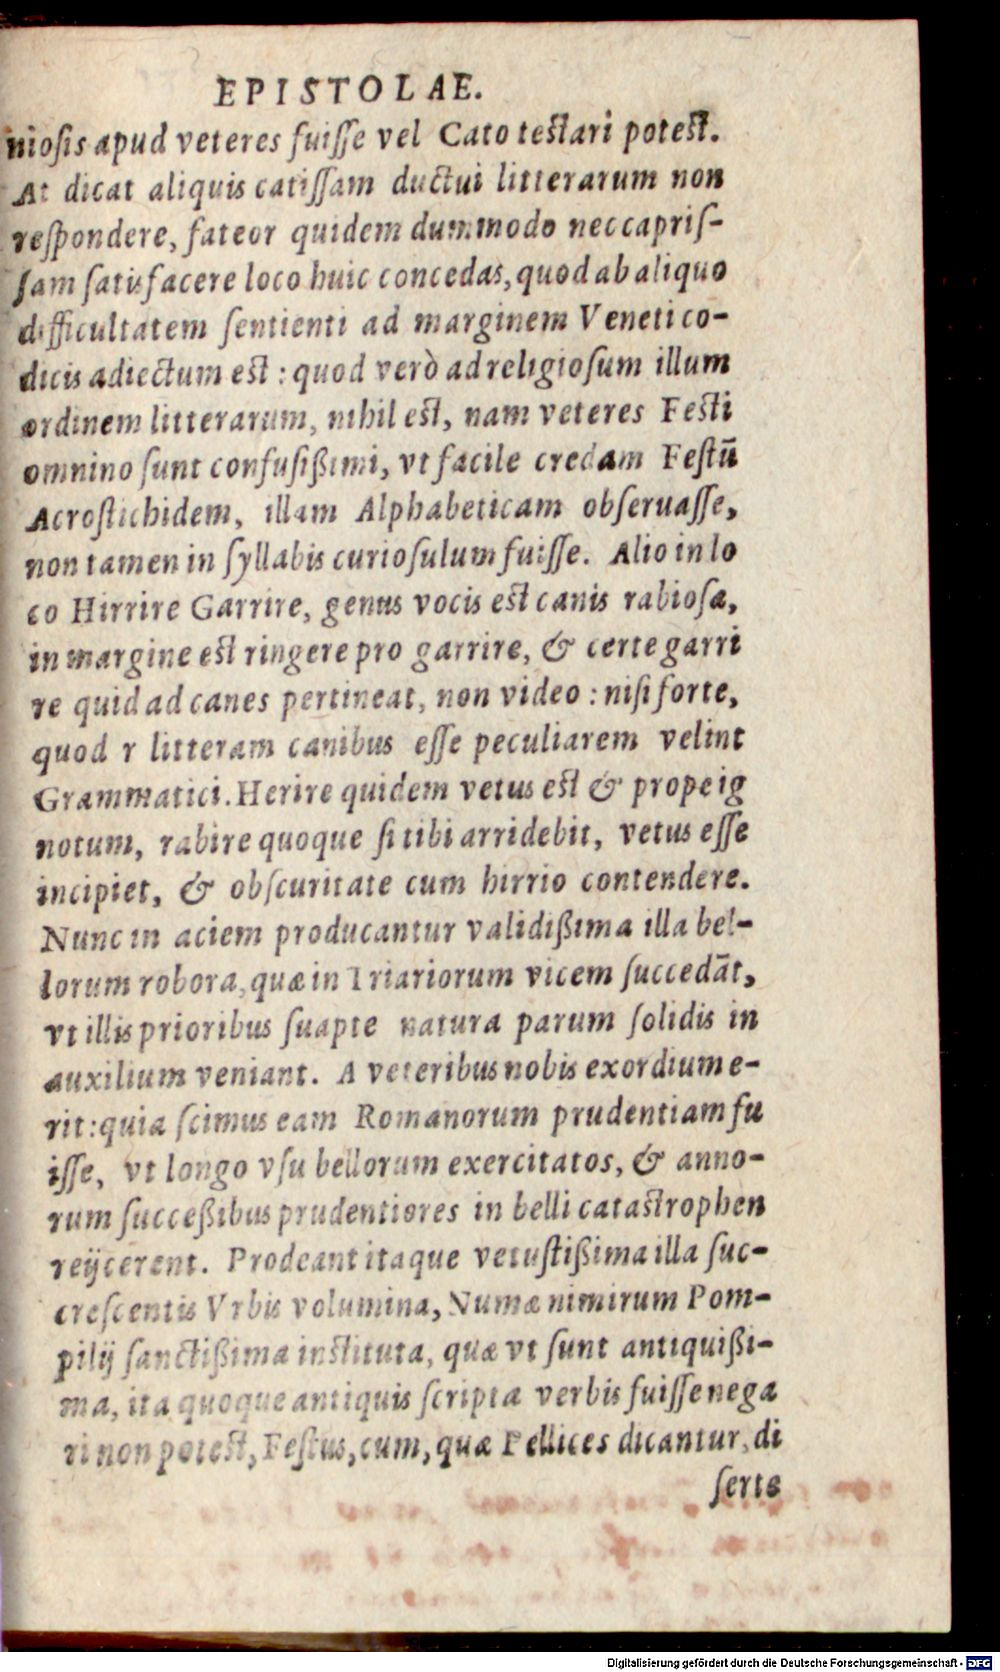 EPISTOLAE.
niosis apud veteres fuiſſe vel Cato testari potest.
At dicat aliquis catiſſam ductui litterarum non
reſpondere, fateor quidem dummodo nec capriſ-
ſam ſatisfacere loco huic concedas, quod ab aliquo
difficultatem ſentienti ad marginem Veneti co-
dicis adiectum est : quod verò ad religioſum illum
ordinem litterarum, nihil est, nam veteres Festi
omnino ſunt confuſißimi, vt facile credam Feſtū
Acroſtichidem, illam Alphabeticam obſeruaſſe,
non tamen in ſyllabis curioſulum fuiſſe. Alio in lo
co Hirrire Garrire, genus vocis est canis rabioſa,
in margine est ringere pro garrire, & certe garri
re quid ad canes pertineat, non video : niſi forte,
quod r litteram canibus eſſe peculiarem velint
Grammatici. Herire quidem vetus est & prope ig
notum, rabire quoque ſi tibi arridebit, vetus eſſe
incipiet, & obſcuritate cum hirrio contendere.
Nunc in aciem producantur validißima illa bel-
lorum robora, quæ in Triariorum vicem ſuccedāt,
vt illis prioribus ſuapte natura parum ſolidis in
auxilium veniant. A veteribus nobis exordium e-
rit: quia ſcimus eam Romanorum prudentiam fu
iſſe, vt longo vſu bellorum exercitatos, & anno-
rum ſucceßibus prudentiores in belli catastrophen
reijcerent. Prodeant itaque vetuſtißima illa ſuc-
creſcentis Vrbis volumina, Numæ nimirum Pom-
pilij ſanctißima instituta, quæ vt ſunt antiquißi-
ma, ita quoque antiquis ſcripta verbis fuiſſe nega
ri non potest, Feſtus, cum, quæ Pellices dicantur, di
ſerte
Digitalisierung gefördert durch die Deutsche Forschungsgemeinschaft - DFG